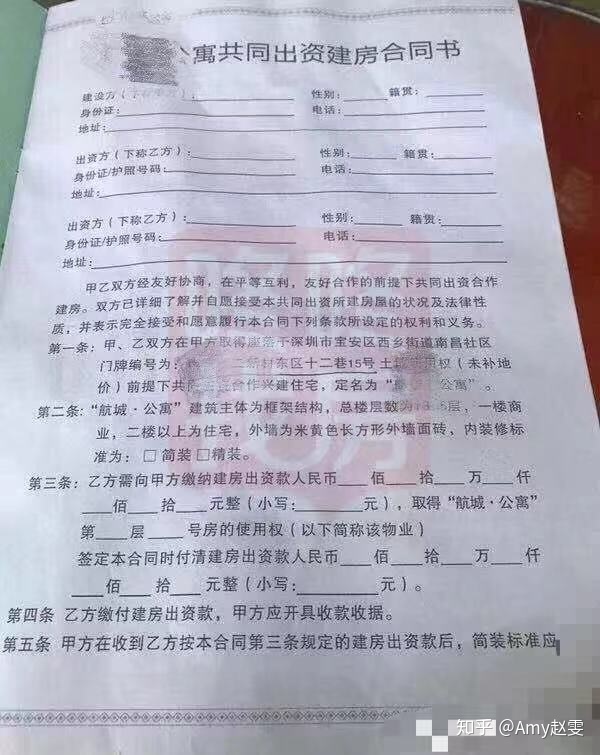 公寓共同出资建房合同书
建设方（下称甲方）： 性别： 籍贯：
身份证： 电话：
地址：
出资方（下称乙方）： 性别： 籍贯：
身份证/护照号码： 电话：
地址：
出资方（下称乙方）： 性别： 籍贯：
身份证/护照号码： 电话：
地址：
甲乙双方经友好协商，在平等互利，友好合作的前提下共同出资合作
建房。双方已详细了解并自愿接受本共同出资所建房屋的状况及法律性
质，并表示完全接受和愿意履行本合同下列条款所设定的权利和义务。
第一条：甲、乙双方在甲方取得座落于深圳市宝安区西乡街道南昌社区
门牌编号为： 二新村东区十二巷15号 土地使用权（未补地
价）前提下共同出资合作兴建住宅，定名为“ 公寓”。
第二条：“航城·公寓”建筑主体为框架结构，总楼层数为 层，一楼商
业，二楼以上为住宅，外墙为米黄色长方形外墙面砖，内装修标
准为：□简装□精装。
第三条：乙方需向甲方缴纳建房出资款人民币___佰___拾___万___仟
___佰___拾___元整（小写：______元），取得“航城·公寓”
第___层___号房的使用权（以下简称该物业）
签定本合同时付清建房出资款人民币___佰___拾___万___仟
___佰___拾___元整（小写：______元）。
第四条 乙方缴付建房出资款，甲方应开具收款收据。
第五条 甲方在收到乙方按本合同第三条规定的建房出资款后，简装标准应
知乎 @Amy赵雯